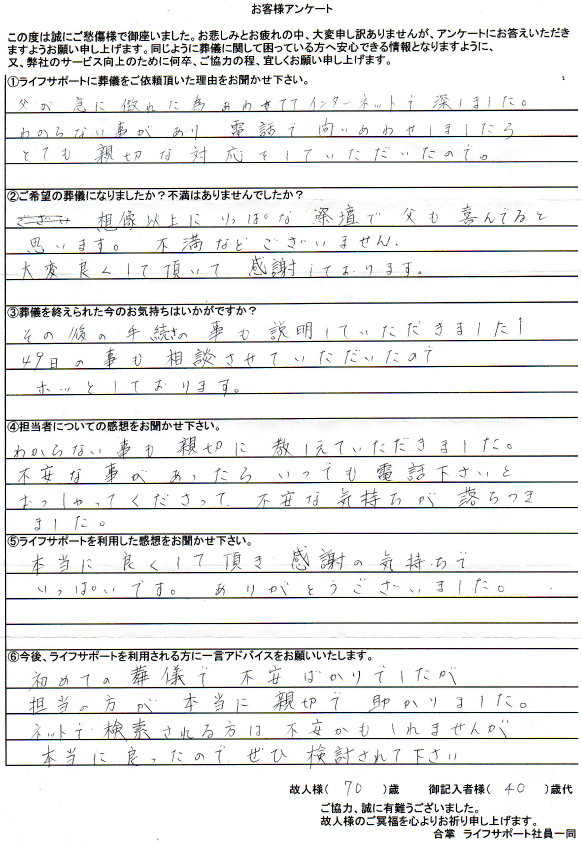 お客様アンケート
この度は誠にご愁傷様で御座いました。お悲しみとお疲れの中、大変申し訳ありませんが、アンケートにお答えいただき
ますようお願い申し上げます。同じように葬儀に関して困っている方へ安心できる情報となりますように、
又、弊社のサービス向上のために何卒、ご協力の程、宜しくお願い申し上げます。
①ライフサポートに葬儀をご依頼頂いた理由をお聞かせ下さい。
父が 急に 倒れた為 あわせてて インターネットで 深しました。
わからない事が あり 電話で 問いあわせしましたら
とても 親切な 対応をしていただいたので。
②ご希望の葬儀になりましたか？不満はありませんでしたか？
想像以上に りっぱな 祭壇で 父も 喜んでると
思います。 不満などございません。
大変 良くして 頂いて 感謝しております。
③葬儀を終えられた今のお気持ちはいかがですか？
その後の 手続きの 事も 説明していただきましたし
49日の 事も 相談させていただいたので
ホッとしております。
④担当者についての感想をお聞かせ下さい。
わからない 事も 親切に 教えていただきました。
不安な 事が あったら いつでも 電話下さいと
おっしゃってくださって 不安な気持ちが 落ちつき
ました。
⑤ライフサポートを利用した感想をお聞かせ下さい。
本当に 良くして 頂き 感謝の気持ちで
いっぱいです。 ありがとうございました。
⑥今後、ライフサポートを利用される方に一言アドバイスをお願いいたします。
初めての 葬儀で 不安ばかりでしたが
担当の方が 本当に 親切で 助かりました。
ネットで 検索される方は 不安かもしれませんが
本当に 良ったので ぜひ 検討されて下さい
故人様( 70 )歳 御記入者様( 40 )歳代
ご協力、誠に有難うございました。
故人様のご冥福を心よりお祈り申し上げます。
合掌 ライフサポート社員一同